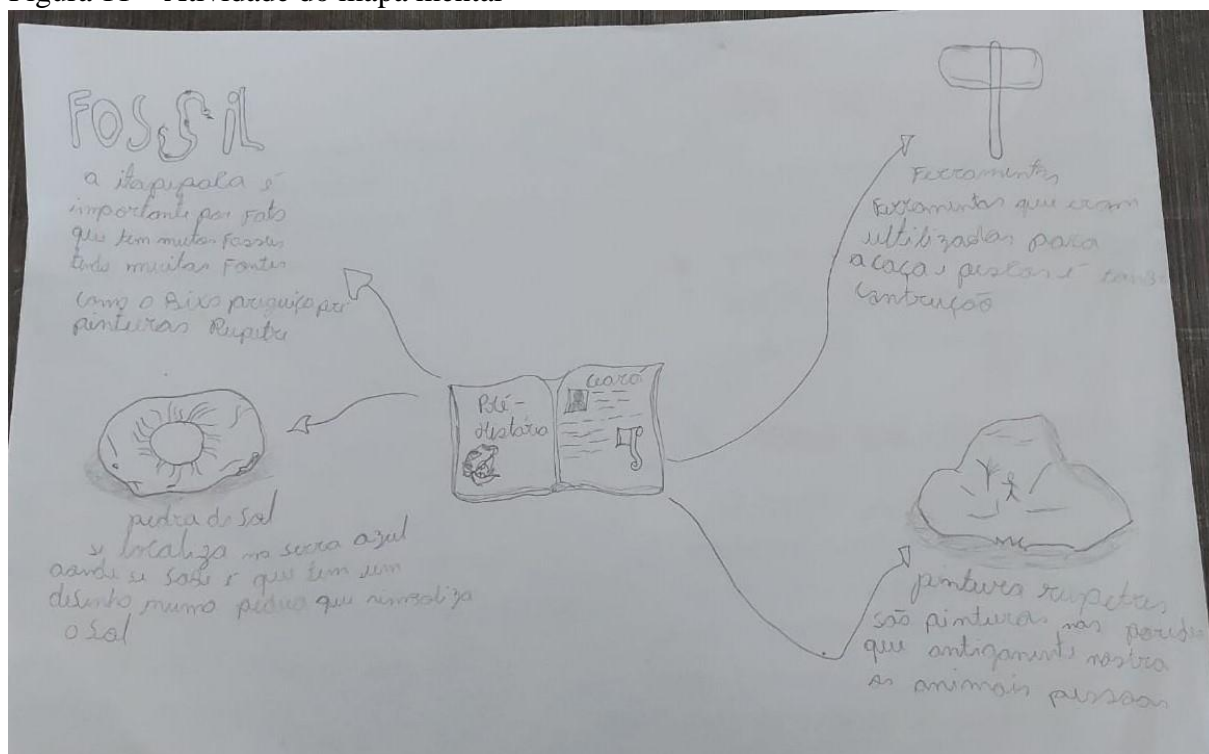 Figura 11 – Atividade do mapa mental
FOSSiL
a itapipoca é
importante por Fato
que tem muitos Fosseis
tendo muitas Fontes
como o Bixo priguiça pri
pinturas Rupetre
pedra do Sol
se localiza na serra azul
aonde se sabe é que tem um
desenho numa pedra que simboliza
o Sol
Pré-
Història
ceará
Ferramentas
Ferramentas que eram
ultilizadas para
a caça, pescas é
contrução
pinturas rupetres
são pinturas nas paredes
que antigamente mostra
os animais pessoas